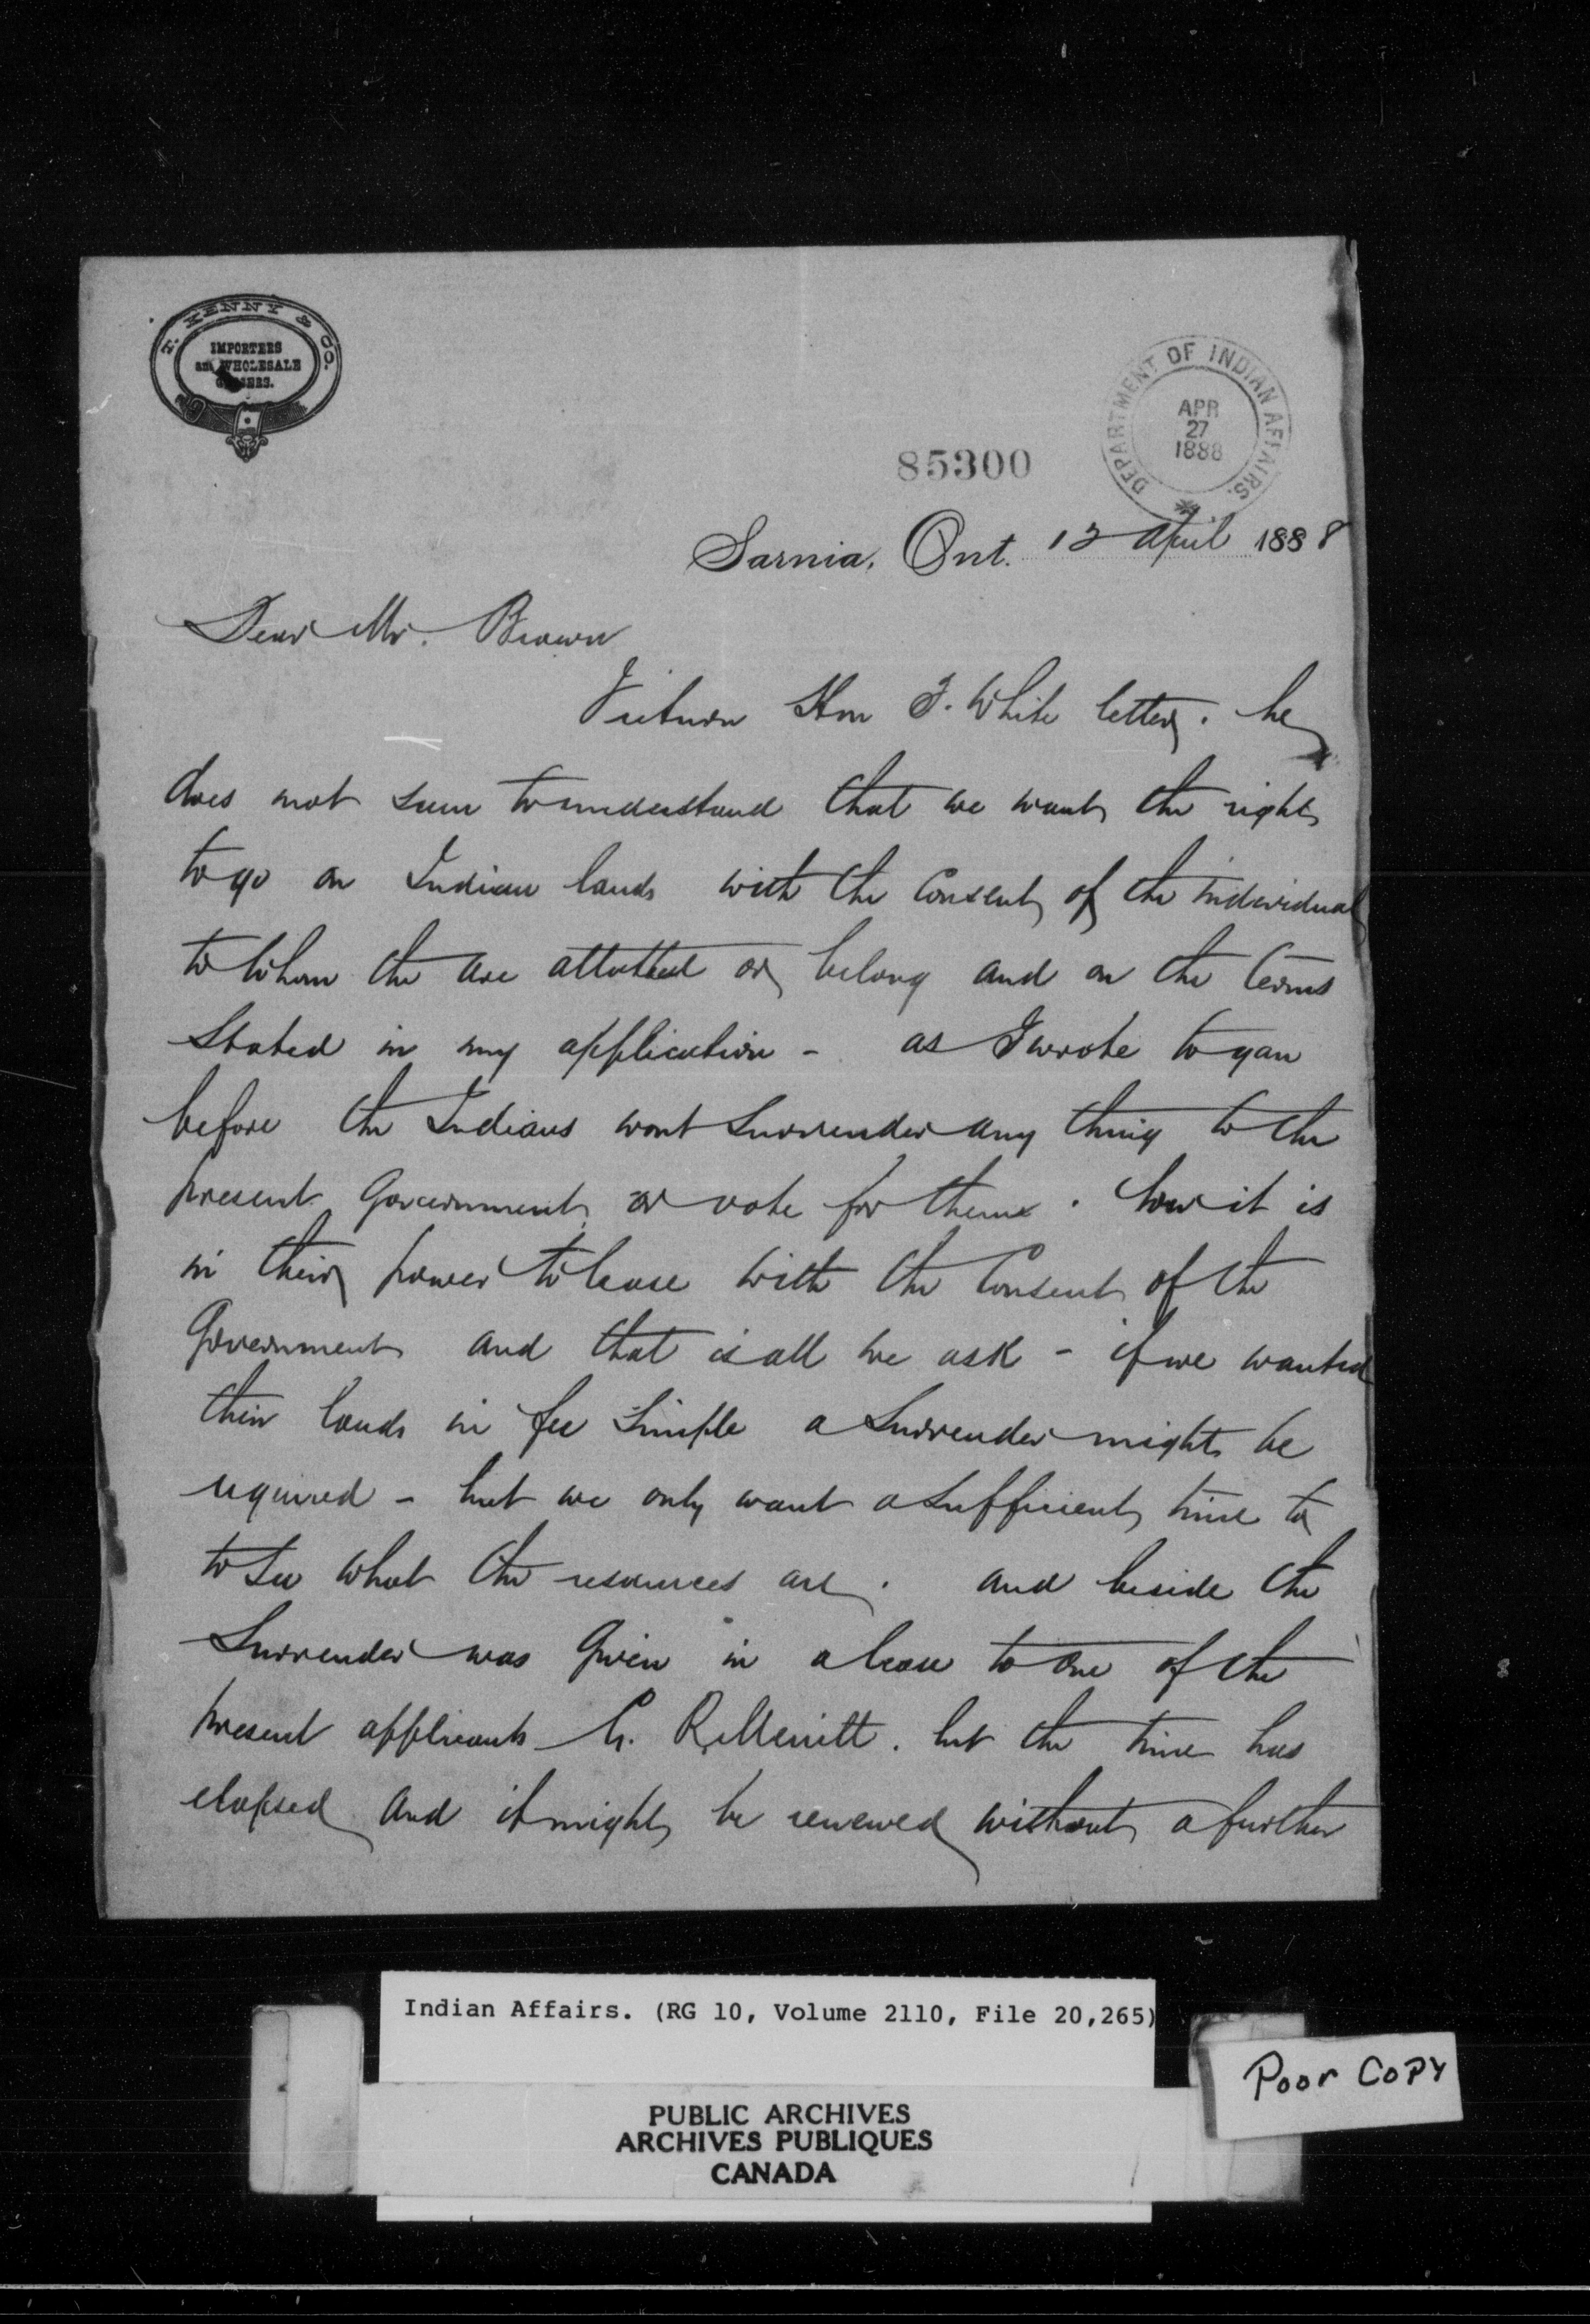 T. KENNY & CO.
IMPORTERS
and WHOLESALE
GROCERS.
DEPARTMENT OF INDIAN AFFAIRS.
APR
27
1888
85300
Sarnia, Ont. 12 April 1888
Dear Mr. Brown
I return Hon T. White letter. he
does not seem to understand that we want the right
to go on Indian lands with the Consent of the individual
to whom the are allotted or belong and on the terms
Stated in my application - as I wrote to you
before the Indians wont Surrender any thing to the
present Government or vote for them. how it is
in their power to lease with the Consent of the
Government and that is all we ask - if we wanted
their lands in fee Simple a Surrender might be
required - but we only want a sufficient time to
to see what the resources are. and beside the
Surrender was given in a lease to one of the
present applicants R. Merritt. but the time has
elapsed and it might be renewed without a further
Indian Affairs. (RG 10, Volume 2110, File 20,265)
Poor Copy
PUBLIC ARCHIVES
ARCHIVES PUBLIQUES
CANADA